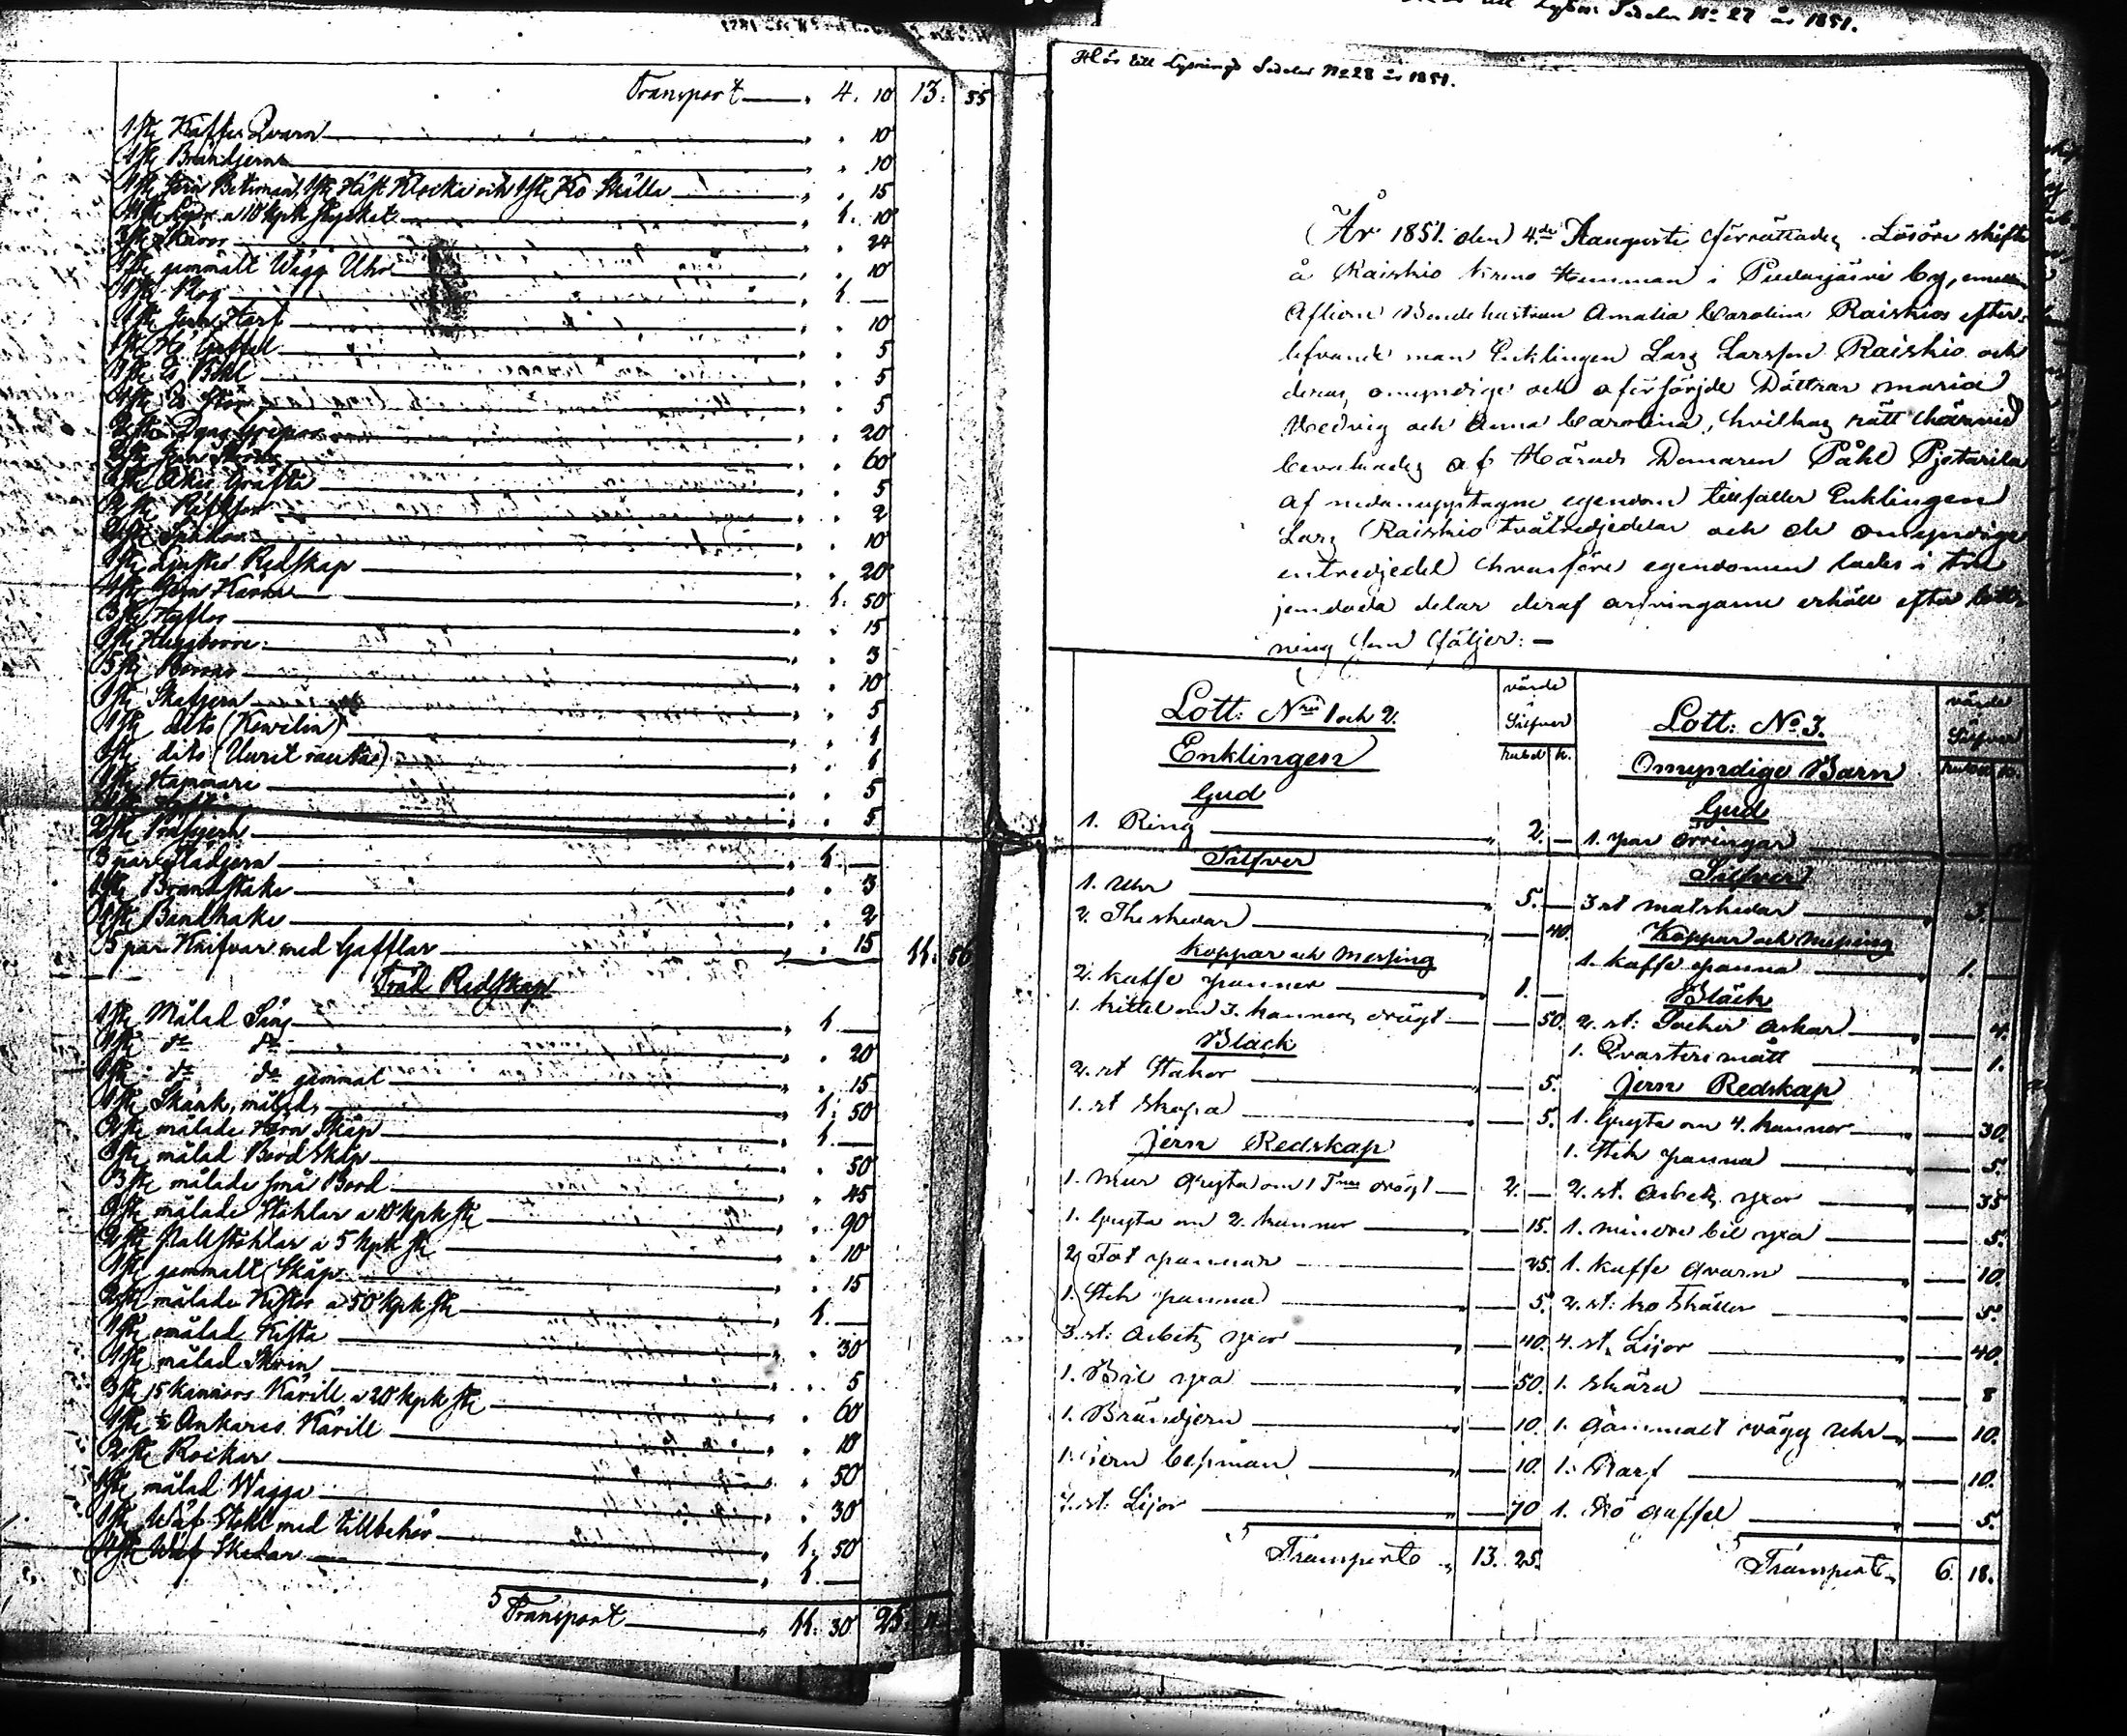 Transport — " 4. 10 13. 55
1 st: Kaffe Qvarn — " " 10
1 st: Brändjern — " " 10
1 st: Jern Betsman, 1 st: Häst Klocka och 1 st: Ko Skälla — " " 15
11 st: Lijor a 10 kpk stycket — " 1. 10
3 st: Skäror — " " 24
1 st: gammalt Wägg Uhr — " " 10
1 st: Plog — " 1. —
1 st: Jern Harf — " " 10
1 st: Hö Gaffel — " " 5
— " " 5
— " " 5
2 st: Dyng Grepar — " " 20
— " " 60
— " " 5
— " " 2
— " " 10
1 st: Ljuster Redskap — " " 20
1 st: Jern Kärra — " 1. 50
3 st: Hyflor — " " 15
— " " 3
5 st: — " " 10
1 st: Skafjern — " " 5
1 st: dito (Kewelin) — " " 1
1 st: dito (Uurit rauta) — " " 1
1 st: Hammare — " " 5
— " " 5
2 st:
3 par Städjern — " 1. —
1 st: Brandstake — " " 3
1 st: Bandhake — " " 2
5 par Knifvar med Gafflar — " " 15 11. 56
Träd Redskap
1 st: Målad Säng — " 1. —
1 st: do do — " " 20
1 st: do do gammal — " " 15
1 st: Skänk, målad, — " 1. 50
2 st: målade Hörn Skåp — " 1. —
1 st: målad Bord Skåp — " " 50
3 st: målade små Bord — " " 45
9 st: målade Stohlar a 10 kpk st: — " " 90
2 st: Pallstohlar a 5 kpk st: — " " 10
1 st: gammalt Skåp — " " 15
2 st: målade Kistor a 50 kpk st: — " 1. —
1 st: omålad Kista — " " 30
1 st: målad Skrin — " " 5
3 st: 15 Kannors Kärill a 20 kpk st: — " " 60
1 st: ½ Ankares Kärill — " " 10
2 st: Rockar — " " 50
1 st: målad Wagga — " " 30
1 st: Wäf Stohl med tillbehör — " 1. 50
4 st: Wäf Skedar — " 1. —
Transport — " 11. 30 25. 11.
till Lysn: Sedeln No 27 år 1851.
Hör till Lysnings Sedeln No 28 år 1851.
År 1851. den 4de Augusti förrättades Lösöre skifte
å Raiskio Hemman i Pudasjärvi by, emellan
Aflidne Bondehustrun Amalia Carolina Raiskios efter-
lefvande man Enklingen Lars Larsson Raiskio och
deras omyndige och oförsörjde Döttrar Maria
Hedvig och Anna Carolina, hvilkas rätt härvid
bevakades af Härads Domaren Påhl Pjetarila
af nedanupptagne egendom tillfaller Enklingen
Lars Raiskio tvåtredjedelar och de omyndige
entredjedel hvarföre egendomen lades i tre
jemdoda delar deraf arfvingarne erhöll efter lott-
ning som följer: —
Lott: Nris 1 och 2. värde i Silfver
Enklingen Rubel K.
Guld
1. Ring — " 2. —
Silfver
1. Uhr — " 5. —
2. Theskedar — " — 40.
Koppar och Messing
2. Kaffe pannor — 1. —
1. Kittel om 3. kannors drägt — — 50.
Bläck
2. st Stakar — " — 5.
1. st Skopa — — 5.
Jern Redskap
1. Mur Gryta om 1 Tnas drägt — 2. —
1. Gryta om 2. kannor — — 15.
2. Fat pannor — — 25.
1. Stek panna — — 5.
3. st: Arbets yxor — — 40.
1. Bil yxa — " — 50.
1. Brändjern — " — 10.
1. jern besman — " — 10.
7. st: Lijor — " — 70
Transport " 13. 25.
Lott: No. 3. värde i Silfver
Omyndige Barn Rubel K.
Guld
1. par örringar —
Silfver
3 st matskedar — " 3. —
Koppar och Messing
1. kaffe panna — " 1. —
Bläck
2. st: Socker askar — " — 4.
1. Qvarters mått — — 1.
Jern Redskap
1. Gryta om 4. kannor — — 30.
1. Stek panna — " — 5.
2. st. Arbets yxor — " — 35
1. mindre bil yxa — " — 5.
1. kaffe qvarn — " — 10.
2. st: ko skällor — " — 5.
4. st. Lijor — " — 40.
1. skära — " — 8
1. Gammalt wägg Uhr — " — 10.
1. Harf — " — 10.
1. Hö Gaffel — " — 5.
Transport " 6. 18.